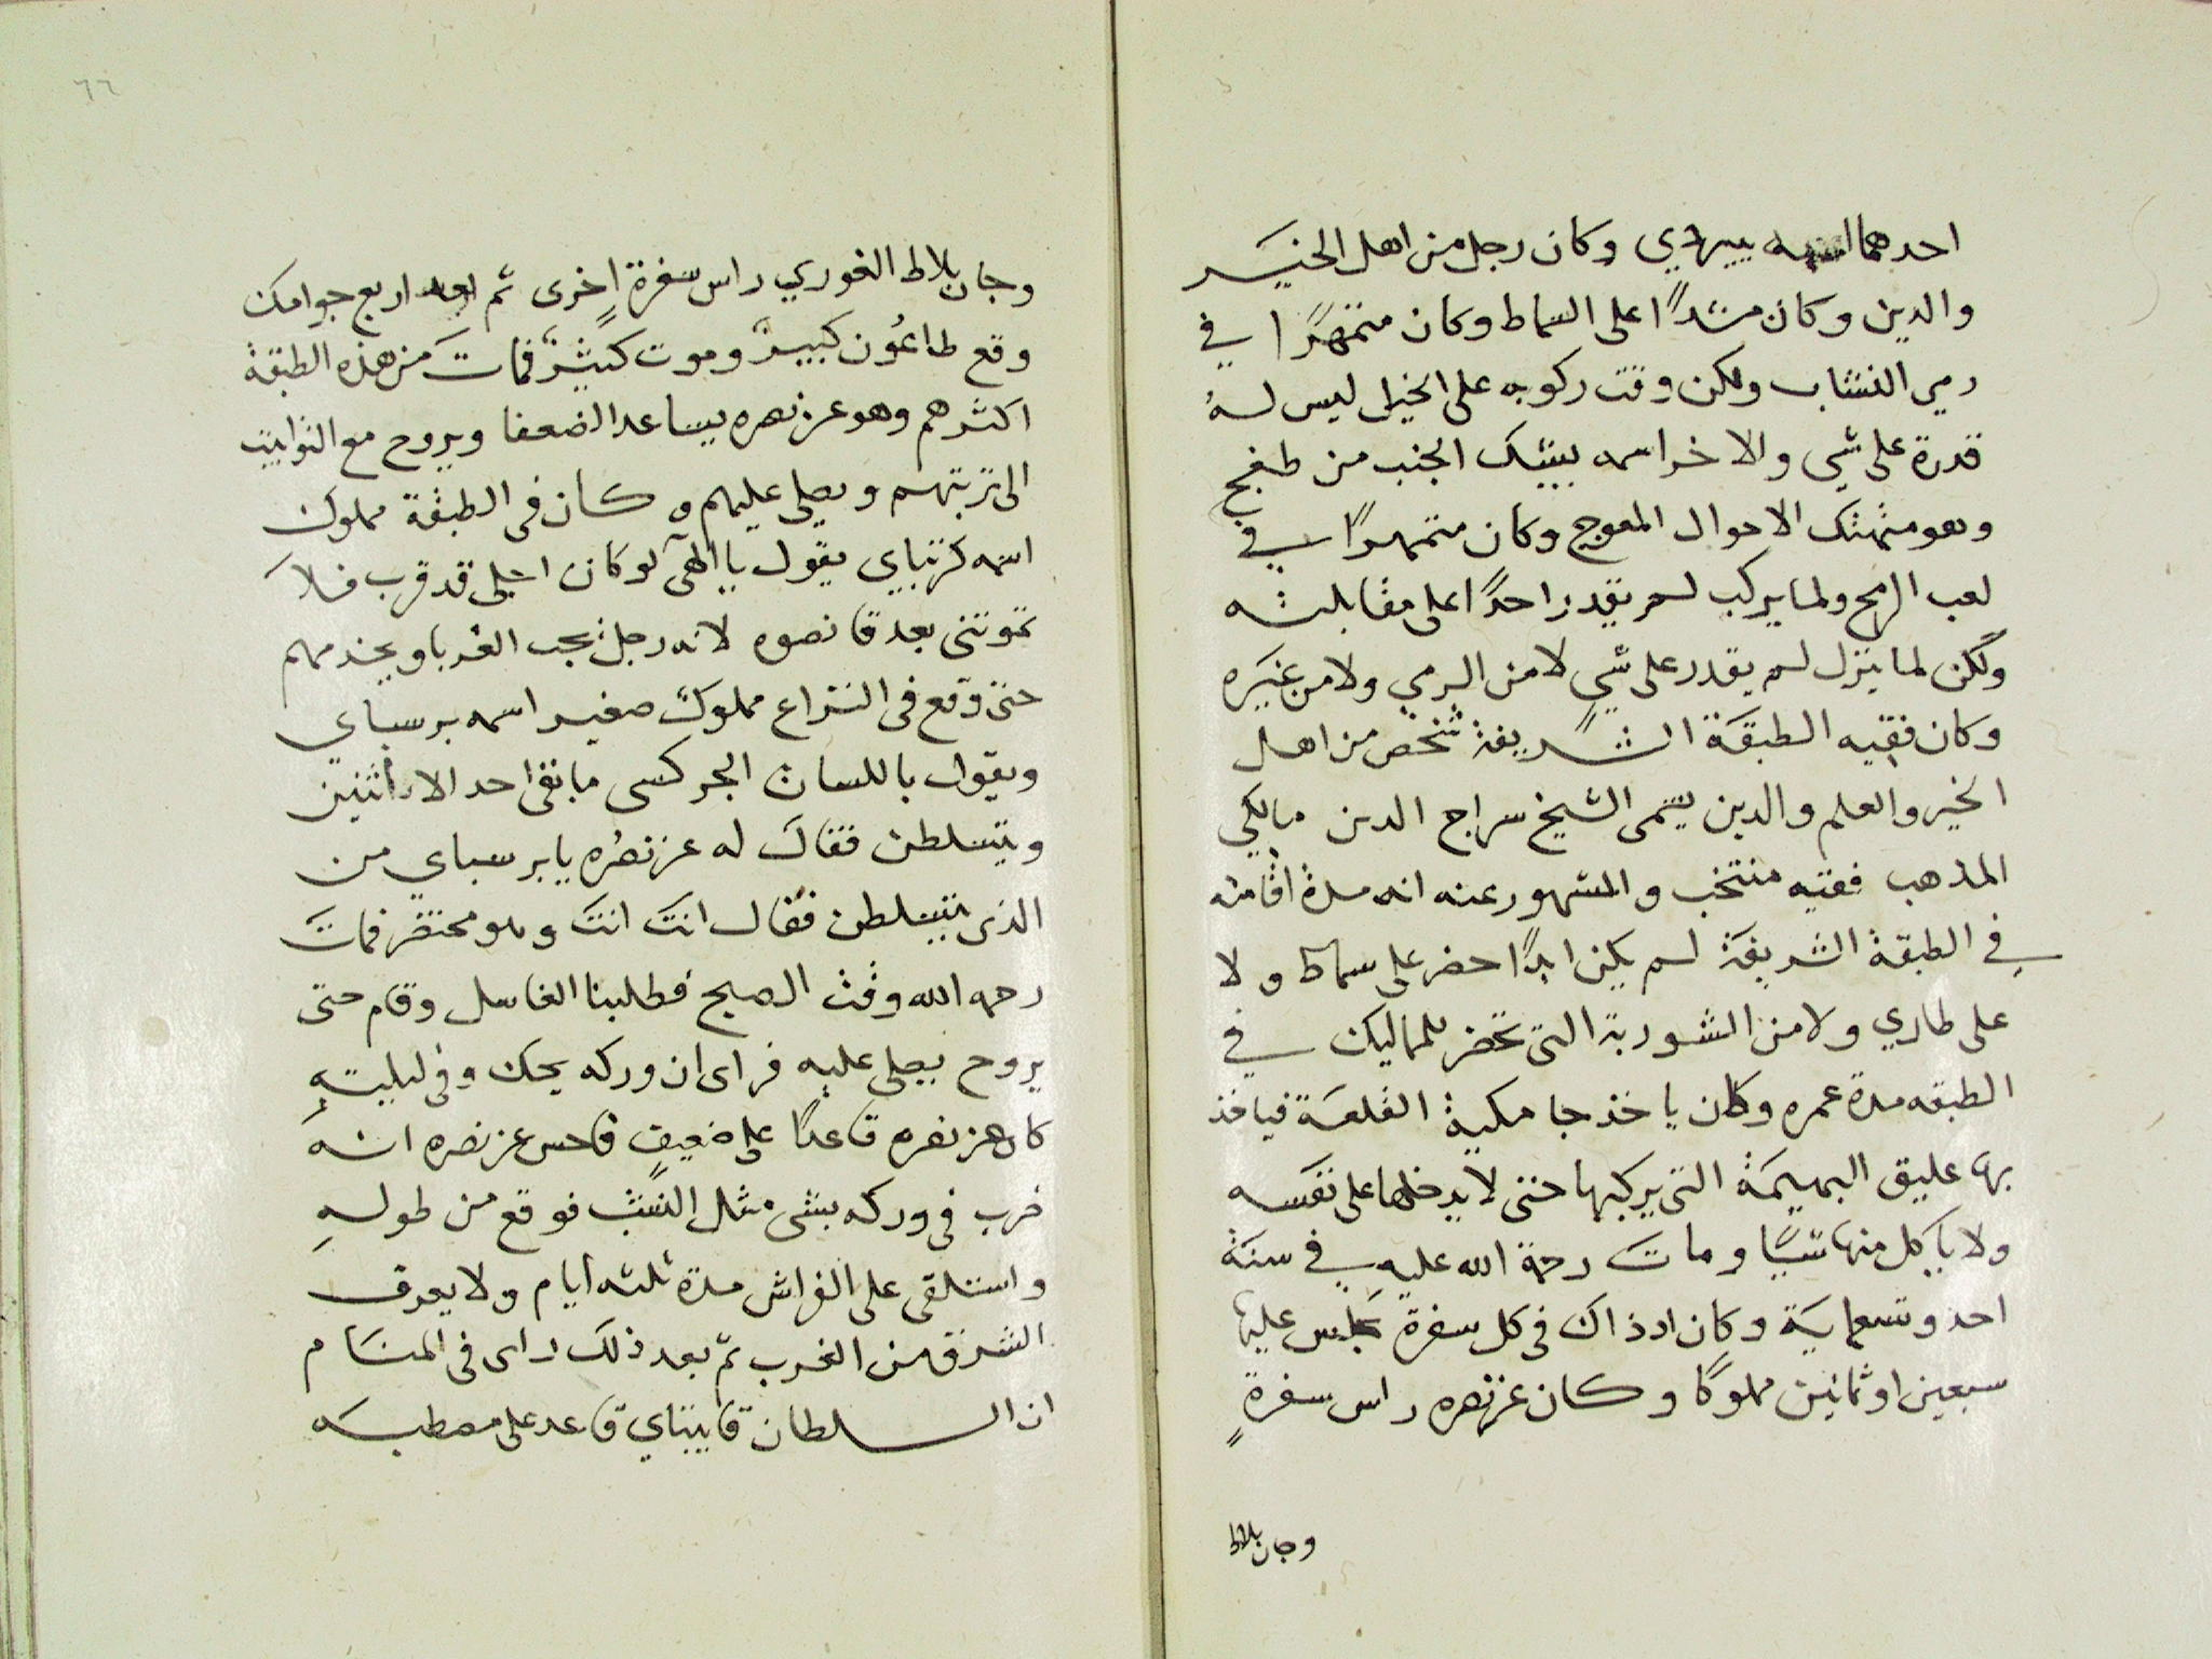 احدهما اسمه بيبردي وكان رجل من اهل الخيــر
والدين وكان مشدًا على السماط وكان متمهرًا في
رمي النشاب ولكن وقت ركوبه على الخيل ليس له
قدرة على شي والاخر اسمه بيشبك الجنب من طفج
وهو متهتك الاحوال المعوج وكان متمهرًا في
لعب الرمح ولما يركب لم يقدر احدًا على مقابلته
ولكن لما ينزل لم يقدر على شيٍ لا من الرمي ولا من غيره
وكان فقيه الطبقة الشريفة شخص من اهل
الخير والعلم والدين يسمى الشيخ سراج الدين مالكي
المذهب فقيه منتخب والمشهور عنه انه مدة اقامته
في الطبقة الشريفة لم يكن ابدًا حضر على سماط ولا
على طاري ولا من الشوربة التى تحضر للمماليك في
الطبقه مدة عمره وكان ياخذ جامكية القلعة فياخذ
بها عليق البهيمة التى يركبها حتى لا يدخلها على نفسه
ولا ياكل منها شيًا ومات رحمة الله عليه في سنة
احد وتسعماية وكان اذ ذاك فى كل سفرة يجلس عليها
سبعين او ثمانين مملوكًا وكان عز نصره راس سفرةٍ
وجان بلاط
٦٦
وجان بلاط الغوري راس سفرةٍ اخرى ثم بعد اربع جوامك
وقع طاعُون كبيرٌ وموت كثيرٌ فمات من هذه الطبقة
اكثرهم وهو عز نصره يساعد الضعفا ويروح مع التوابيت
الى تربتهم ويصلى عليهم وكان فى الطبقة مملوك
اسمه كرتباي يقول يا الهى لو كان اجلى قد قرب فلا
تموتنى بعد قانصوه لانه رجل يحب الغربا ويخدمهم
حتى وقع فى النزاع مملوك صغير اسمه برسباي
ويقول باللسان الجركسى ما بقى احد الا اثنين
ويتسلطن فقال له عز نصرُه يا برسباي من
الذى يتسلطن فقال انتَ انتَ وهو محتضر فمات
رحمه الله وقت الصبح فطلبنا الغاسل وقام حتى
يروح يصلى عليه فراى ان وركه يحك وفى ليلته
كان عز نصره قاعدًا على ضعيفٍ فاحس عز نصره انه
ضرب فى وركه بشى مثل النشب فوقع من طوله
واستلقى على الفراش مدة ثلثه ايام ولا يعرف
الشرق من الغرب ثم بعد ذلك راى فى المنام
ان السلطان قايتباي قاعد على مصطبه